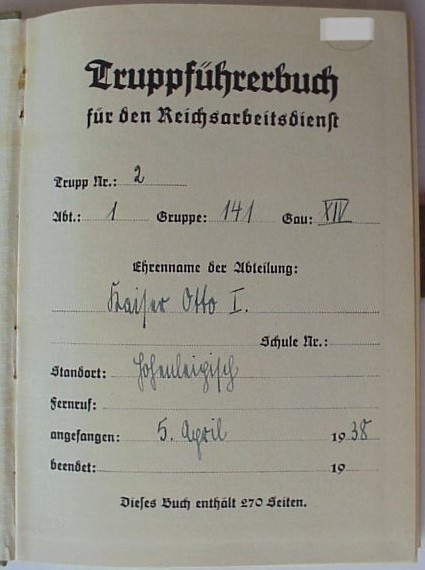 Truppführerbuch
für den Reichsarbeitsdienst
Trupp Nr.: 2
Abt.: 1 Gruppe: 141 Gau: XIV
Ehrenname der Abteilung:
Kaiser Otto I.
Schule Nr.:
Standort: Hohenleipisch
Fernruf:
angefangen: 5. April 1938
beendet: 19
Dieses Buch enthält 270 Seiten.